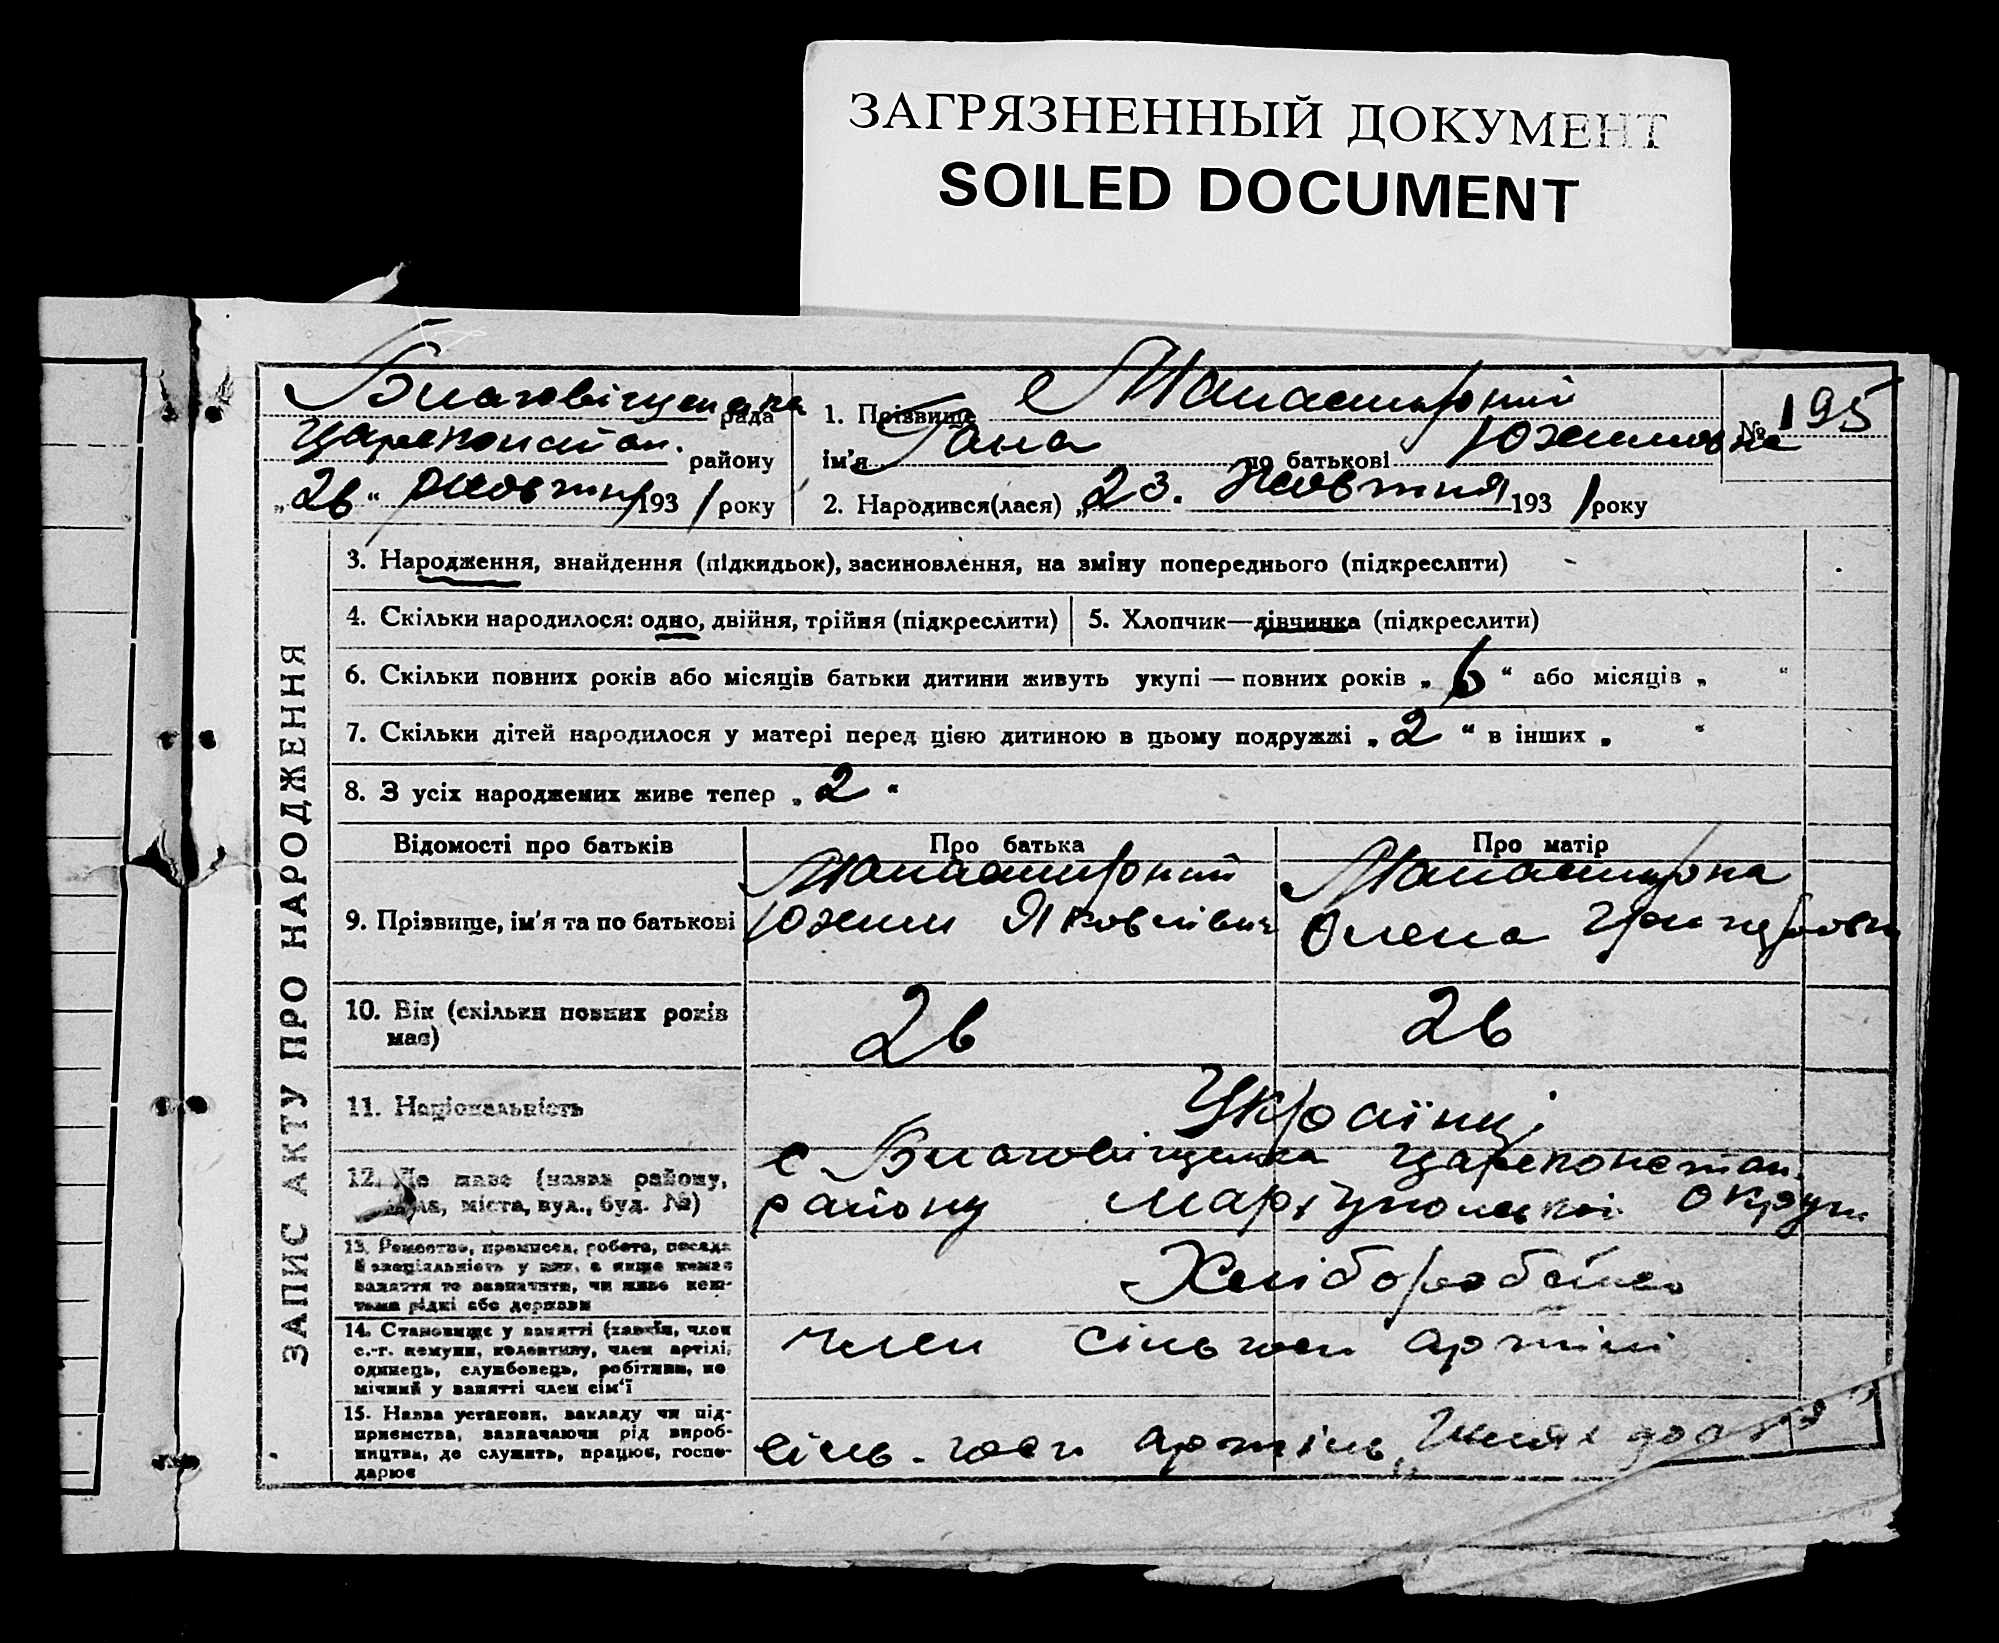 ЗАГРЯЗНЕННЫЙ ДОКУМЕНТ
SOILED DOCUMENT
ЗАПИС АКТУ ПРО НАРОДЖЕННЯ
Благовіщенська рада
Цареконстан. району
„26“ Жовтня 1931 року
1. Прізвище Манастирний
ім'я Гана по батькові Юхимовна
№ 195
2. Народився(лася) „23. Жовтня 1931 року
3. Народження, знайдення (підкидьок), засиновлення, на зміну попереднього (підкреслити)
4. Скільки народилося: одно, двійня, трійня (підкреслити)
5. Хлопчик—дівчинка (підкреслити)
6. Скільки повних років або місяців батьки дитини живуть укупі — повних років „6“ або місяців „ “
7. Скільки дітей народилося у матері перед цією дитиною в цьому подружжі „2“ в інших „ “
8. З усіх народжених живе тепер „2“
Відомості про батьків
Про батька
Про матір
9. Прізвище, ім'я та по батькові
Манастирний
Юхим Яковлівич
Манастирна
Олена
10. Вік (скільки повних років має)
26
26
11. Національність
Українці
12. Де живе (назва району, села, міста, вул., буд. №)
с Благовіщенка Цареконстан.
району Маріупольської округи
13. Ремество, промисел, робота, посада й спеціяльність у них, а якщо немає
заняття то зазначити, чи живе кош-
тами рідні або держави
Хлібороб
14. Становище у занятті (хазяїн, член
с.-г. комуни, колективу, член артілі,
одинець, службовець, робітник, по
мічний у занятті член сім'ї
член сільгосп артілі
15. Назва установи, закладу чи під-
приємства, зазначаючи рід вироб-
ництва, де служить, працює, госпо-
дарює
сіль. госп артіль „